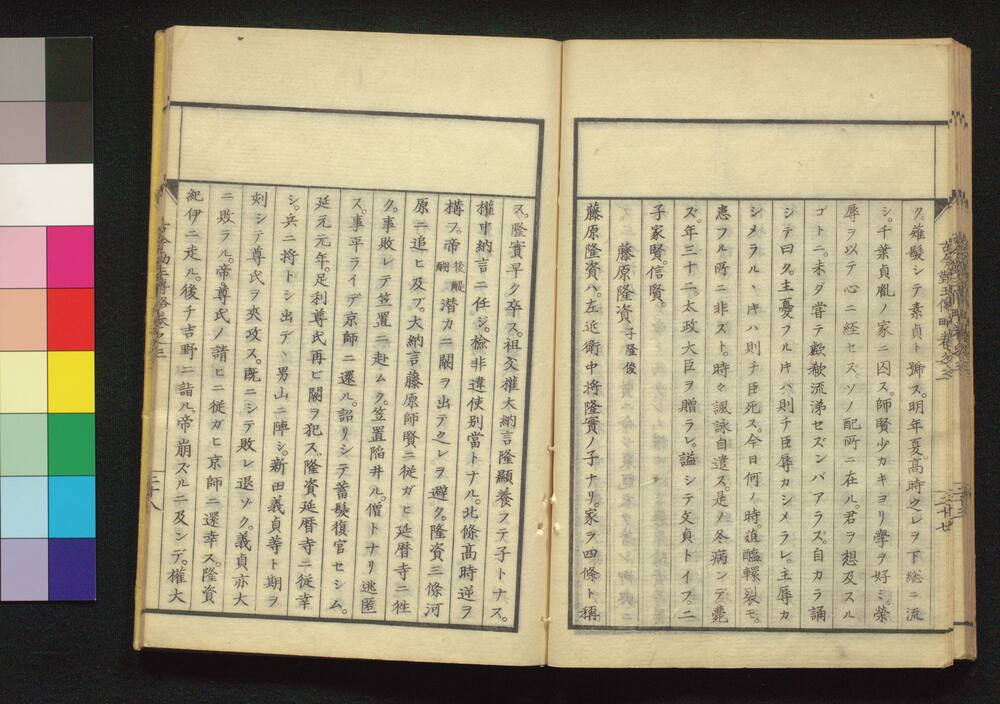 ク。薙髮シテ素貞ト號ス。明年夏。髙時之レヲ下総ニ流
シ。千葉貞胤ノ家ニ囚ス。師賢少カキヨリ學ヲ好ミ。榮
辱ヲ以テ心ニ経セズ。ソノ配所ニ在ル。君ヲ想及スル
ゴトニ。未ダ嘗テ歔欷流涕セズンバアラズ。自カラ誦
シテ曰ク。主憂フルキハ則チ臣辱カシメラレ。主辱カ
シメラルヽキハ則チ臣死ス。今日何ノ時。葅醢轘裂モ。
患フル所ニ非ズト。時々諷詠自遣ス。是ノ冬病ンデ薨
ズ。年三十二。太政大臣ヲ贈ラレ。謚シテ文貞トイフ。二
子家賢。信賢。
藤原隆資 子隆俊
藤原隆資ハ。左近衛中将隆實ノ子ナリ。家ヲ四條ト稱
ス。隆實早ク卒ス。祖父權大納言隆顯養ヲテ子トナス。
權中納言ニ任ジ。檢非違使别當トナル。北條髙時逆ヲ
構フ。帝 後醍醐 潜カニ闕ヲ出テ之レヲ避ク。隆資三條河
原ニ追ヒ及ブ。大納言藤原師賢ニ従ガヒ延暦寺ニ徃
ク。事敗レテ笠置ニ赴ムク。笠置陷井ル。僧トナリ逃匿
ス。事平ライデ京師ニ還ル。詔リシテ蓄髮復官セシム。
延元元年。足利尊氏再ビ闕ヲ犯ス。隆資延暦寺ニ従幸
シ。兵ニ将トシ出デヽ男山ニ陣シ。新田義貞等ト期ヲ
刻シテ尊氏ヲ夾攻ス。既ニシテ敗レ退ゾク。義貞亦大
ニ敗ラル。帝尊氏ノ請ヒニ従ガヒ京師ニ還幸ス。隆資
紀伊ニ走ル。後チ吉野ニ詣ル。帝崩ズルニ及ンデ。權大
二十八